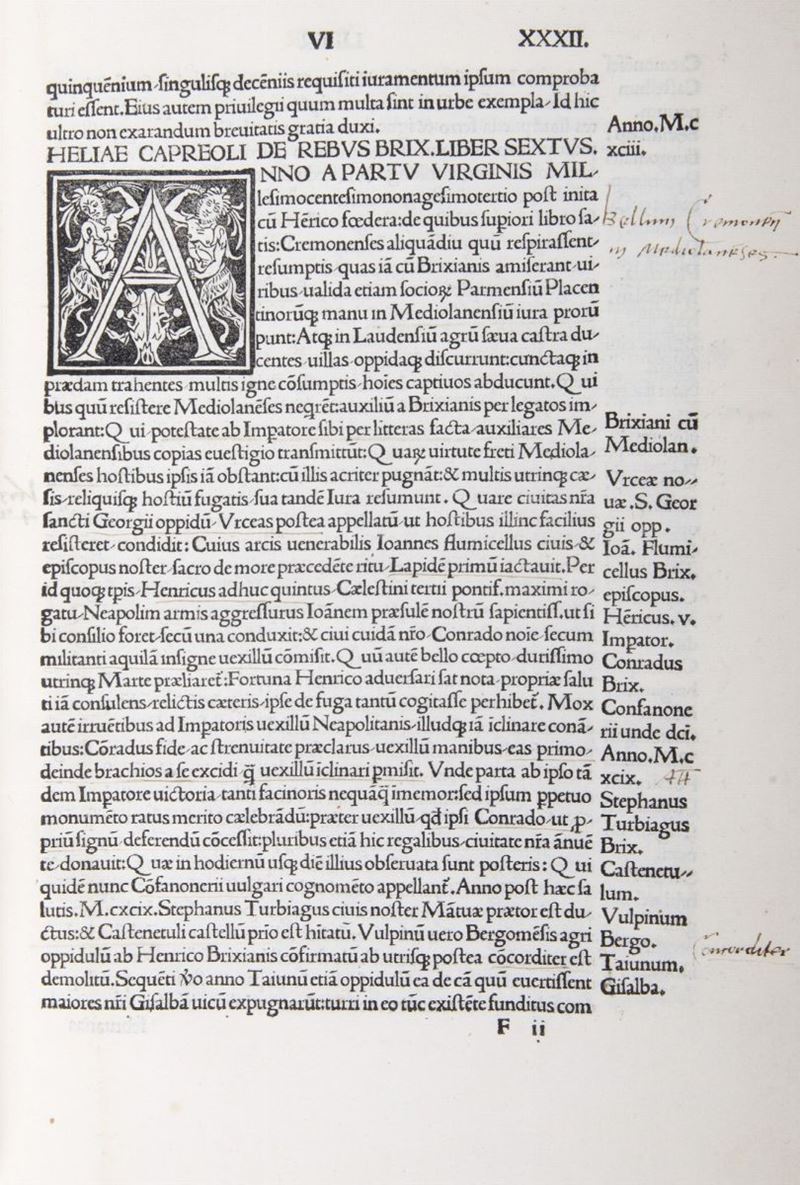 VI XXXII.
quinquēnium ſinguliſqꝫ decēniis requiſiti iuramentum ipſum comproba
turi eſſent. Eius autem priuilegii quum multa ſint in urbe exempla Id hic
ultro non exarandum breuitatis gratia duxi.
HELIAE CAPREOLI DE REBVS BRIX. LIBER SEXTVS.
ANNO A PARTV VIRGINIS MIL⸗
leſimocenteſimononageſimotertio poſt inita
cū Hērico fœdera: de quibus ſupiori libro fa⸗
tis: Cremonenſes aliquādiu quū reſpiraſſent
reſumptis quas iā cū Brixianis amiſerant ui⸗
ribus ualida etiam ſocioꝝ Parmenſiū Placen
tinorūqꝫ manu in Mediolanenſiū iura prorū
punt: Atqꝫ in Laudenſiū agrū ſæua caſtra du⸗
centes uillas oppidaqꝫ diſcurrunt: cunctaqꝫ in
prædam trahentes multis igne cōſumptis hoīes captiuos abducunt. Qui
bus quū reſiſtere Mediolanēſes neqrēt: auxiliū a Brixianis per legatos im⸗
plorant: Qui poteſtate ab Impatore ſibi per litteras facta auxiliares Me⸗
diolanenſibus copias eueſtigio tranſmittūt: Quaꝝ uirtute freti Mediola⸗
nenſes hoſtibus ipſis iā obſtant: cū illis acriter pugnāt: & multis utrinqꝫ cæ⸗
ſis reliquiſqꝫ hoſtiū fugatis ſua tandē Iura reſumunt. Quare ciuitas nr̄a
ſancti Georgii oppidū Vrceas poſtea appellatū ut hoſtibus illinc facilius
reſiſteret condidit: Cuius arcis uenerabilis Ioannes flumicellus ciuis &
epiſcopus noſter ſacro de more præcedēte ritu Lapidē primū iactauit. Per
id quoqꝫ tp̄is Henricus adhuc quintus Cæleſtini tertii pontif. maximi ro⸗
gatu Neapolim armis aggreſſurus Ioānem præſulē noſtrū ſapientiſſ. ut ſi
bi conſilio foret ſecū una conduxit: & ciui cuidā nr̄o Conrado noīe ſecum
militanti aquilā inſigne uexillū cōmiſit. Quū autē bello cœpto duriſſimo
utrinqꝫ Marte præliaret̄: Fortuna Henrico aduerſari ſat nota propriæ ſalu
ti iā conſulens relictis cæteris ipſe de fuga tantū cogitaſſe perhibet̄. Mox
autē irruētibus ad Impatoris uexillū Neapolitanis illudqꝫ iā īclinare conā⸗
tibus: Cōradus fide ac ſtrenuitate præclarus uexillū manibus eas primo
deinde brachios a ſe excidi q̄ uexillū īclinari ꝑmiſit. Vnde parta ab ipſo tā
dem Impatore uictoria tanti facinoris nequāq̄ īmemor: ſed ipſum ꝑpetuo
monumēto ratus merito cælebrādū: præter uexillū qd̄ ipſi Conrado ut ꝓ⸗
priū ſignū deferendū cōceſſit: pluribus etiā hic regalibus ciuitate nr̄a ānuē
te donauit: Quæ in hodiernū uſqꝫ diē illius obſeruata ſunt poſteris: Qui
quidē nunc Cōfanonerii uulgari cognomēto appellant̄. Anno poſt hæc ſa
lutis. M.cxcix. Stephanus Turbiagus ciuis noſter Mātuæ prætor eſt du⸗
ctus: & Caſtenetuli caſtellū prio eſt hītatū. Vulpinū uero Bergomēſis agri
oppidulū ab Henrico Brixianis cōfirmatū ab utriſqꝫ poſtea cōcorditer eſt
demolitū. Sequēti ꝟo anno Taiunū etiā oppidulū ea de cā quū euertiſſent
maiores nr̄i Giſalbā uicū expugnarūt: turri in eo tūc exiſtēte funditus com
F ii
Anno. M.c
xciii.
Bellum Cremonen̄
Brixiani cū
Mediolan.
Vrceæ no⸗
uæ. S. Geor
gii opp.
Ioā. Flumi⸗
cellus Brix.
epiſcopus.
Hēricus. v.
Impator.
Conradus
Brix.
Confanone
rii unde dci.
Anno. M.c
xcix.
Stephanus
Turbiagus
Brix.
Caſtenetu⸗
lum.
Vulpinum
Bergo.
concorditer
Taiunum.
Giſalba.